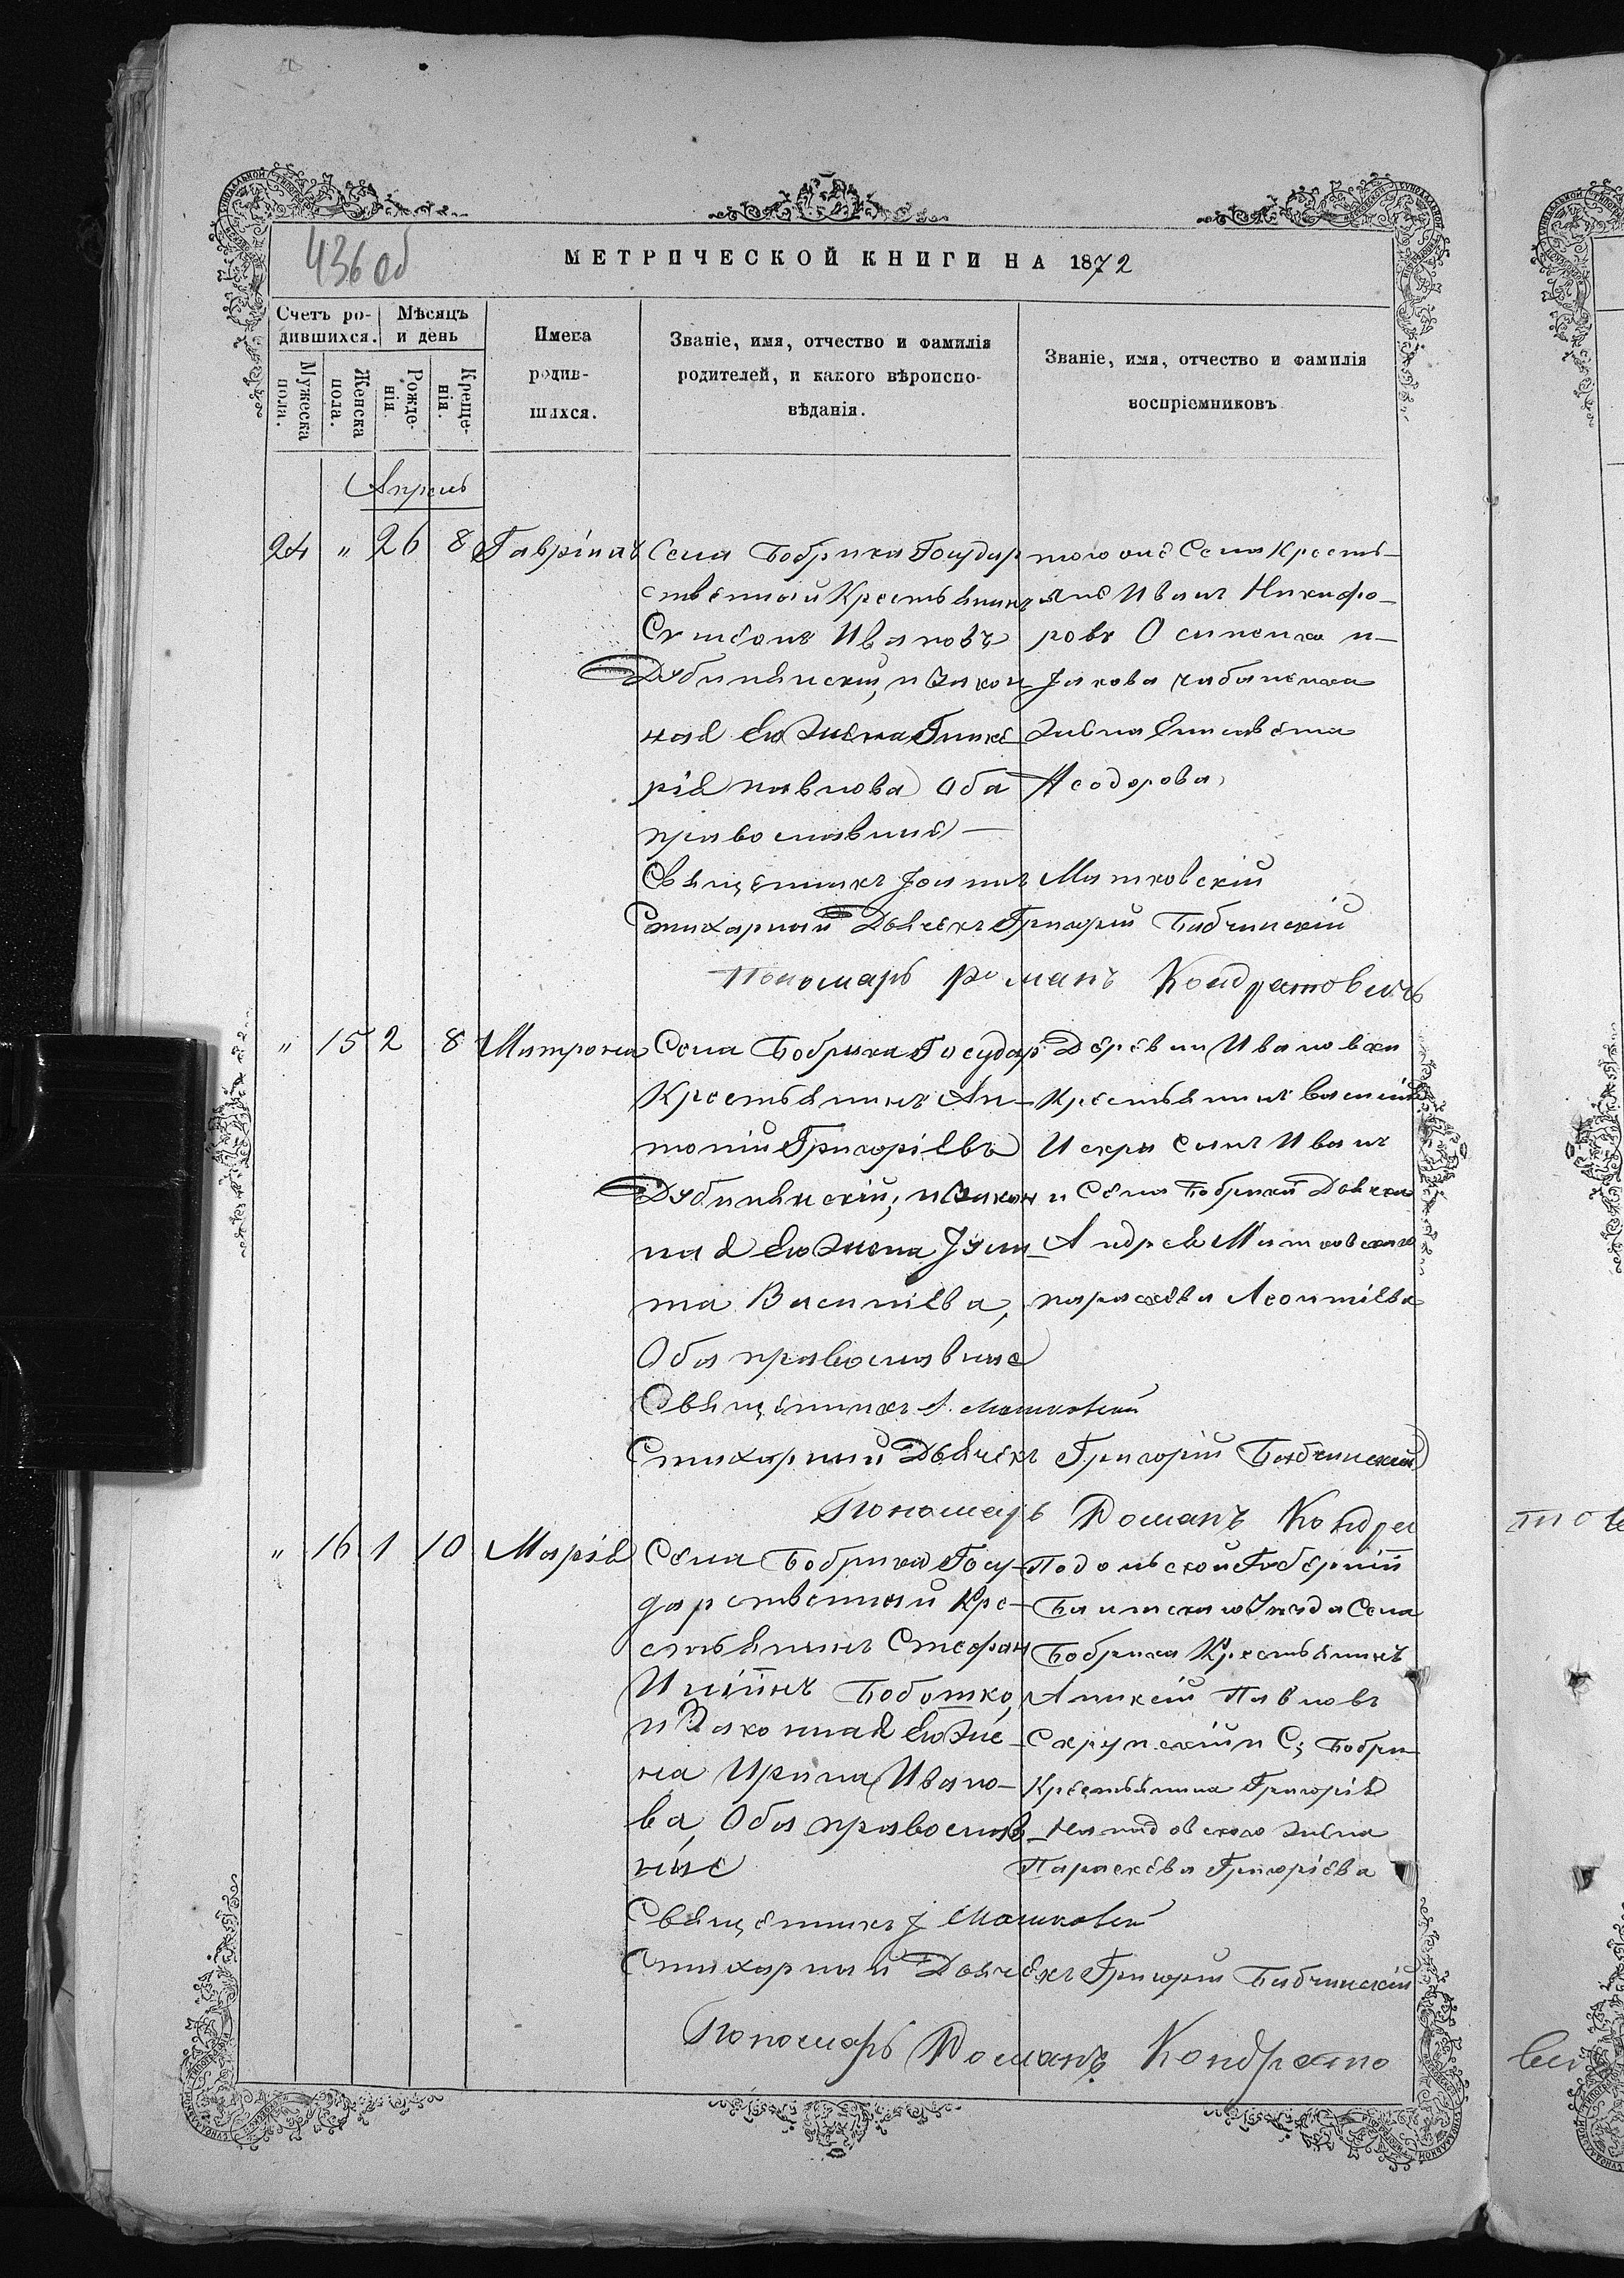 436 об
МЕТРИЧЕСКОЙ КНИГИ НА 1872
Счетъ ро-
дившихся.
Мѣсяцъ
и день
Мужеска
пола.
Женска
пола.
Рожде-
нія.
Креще-
нія.
Имена
родив-
шихся.
Званіе, имя, отчество и фамилія
родителей, и какого вѣроиспо-
вѣданія.
Званіе, имя, отчество и фамилія
воспріемниковъ
Апрель
24 " 26 8 Гавріилъ
Села Бобрика Государ
ственный Крестьянинъ
Симеонъ Ивановъ
Дубинянскій, и закон
ная его жена Глике
рія павлова Оба
православные
того оне Села Кресть-
яне Иванъ Никифо-
ровъ Осипенко и
Јакова чабаненка
жена Елисавета
Ѳеодорова,
Священникъ Јоаннъ Матковскій
Стихарный Дьячекъ Григорій Бабчинскій
Пономарь Романъ Кондратовичъ
" 15 2 8 Матрона
Села Бобрика Государ
Крестьянинъ Ан-
тоній Григоріевъ
Дубинянскій, и закон
ная его жена Јули
та Василіева,
Оба православные
Деревни Ивановки
Крестьянинъ василій
Искры сынъ Иванъ
и Села Бобрика Дьячка
Андрея Матковскаго
параскева Леонтіева
Священникъ І. Матковскій
Стихарный Дьячекъ Григорій Бабчинский
Пономарь Романъ Кондра
" 16 1 10 Марія
Села Бобрика Госу-
дарственный Кре-
стьянинъ Стефан
Иліинъ Боботко,
и Законная его же-
на Ирина Ивано-
ва, Оба православ-
ніе
Подольской Губерніи
Балтскаго Уезда Села
Бобрика Крестьянинъ
Алексій Павловъ
Скрупскій и С; Бобри-
Крестьянина Григорія
жена
Параскева Григоріева
Священникъ J Матковскій
Стихарный Дьячекъ Григорій Бабчинскій
Пономарь Романъ Кондрато